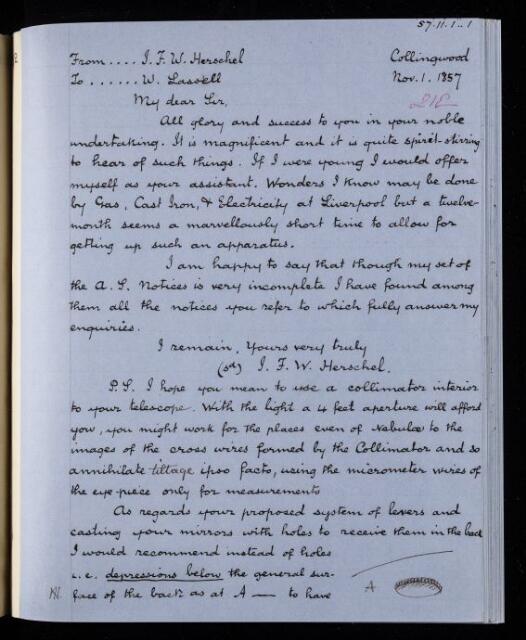 57.11.1..1
From .... J. F. W. Herschel Collingwood
To ...... W. Lassell Nov. 1. 1857
My dear Sir, 212
All glory and success to you in your noble
undertaking. It is magnificent and it is quite spirit-stirring
to hear of such things. If I were young I would offer
myself as your assistant. Wonders I know may be done
by Gas, Cast Iron, & Electricity at Liverpool but a twelve-
month seems a marvellously short time to allow for
getting up such an apparatus.
I am happy to say that though my set of
the A. S. Notices is very incomplete I have found among
them all the notices you refer to which fully answer my
enquiries.
I remain, Yours very truly
(sd) J. F. W. Herschel.
P.S. I hope you mean to use a collimator interior
to your telescope. With the light a 4 feet aperture will afford
you, you might work for the places even of Nebulae to the
images of the cross wires formed by the Collimator and so
annihilate tiltage ipso facto, using the micrometer wires of
the eye-piece only for measurements
As regards your proposed system of levers and
casting your mirrors with holes to receive them in the back
I would recommend instead of holes
i.e. depressions below the general sur-
face of the back as at A — to have
A